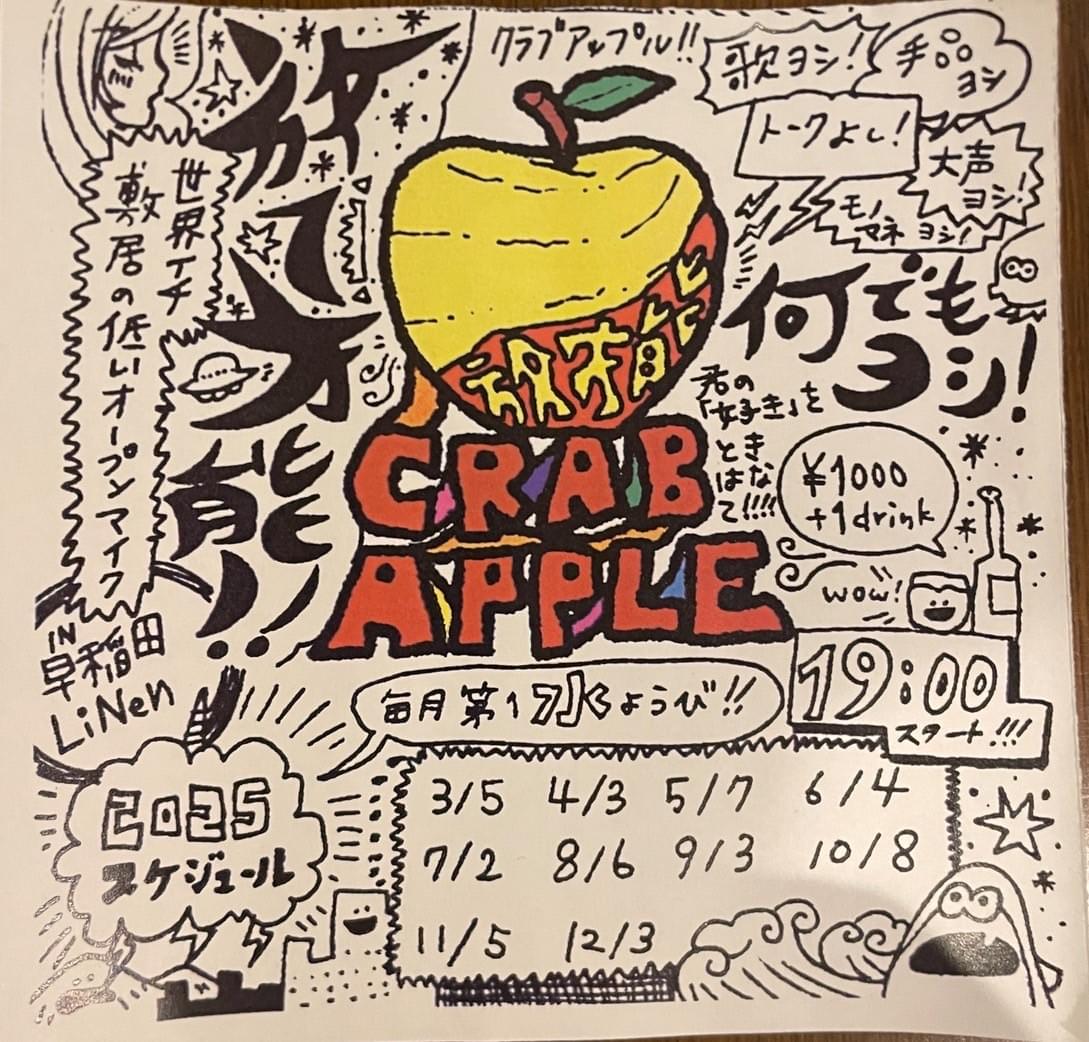 クラブアップル!!
歌ヨシ!
ヨシ
トークよし!
大声
ヨシ!
モノ
マネヨシ!
放て才能!!
世界イチ
敷居の低いオープンマイク
何でも
ヨシ!
君の
「好き」を
ときはなて!!!!
CRAB
APPLE
¥1000
+1drink
wow!
IN
早稲田
LiNen
毎月第1水ようび!!
19:00
スタート!!!
2025
スケジュール
3/5 4/3 5/7 6/4
7/2 8/6 9/3 10/8
11/5 12/3